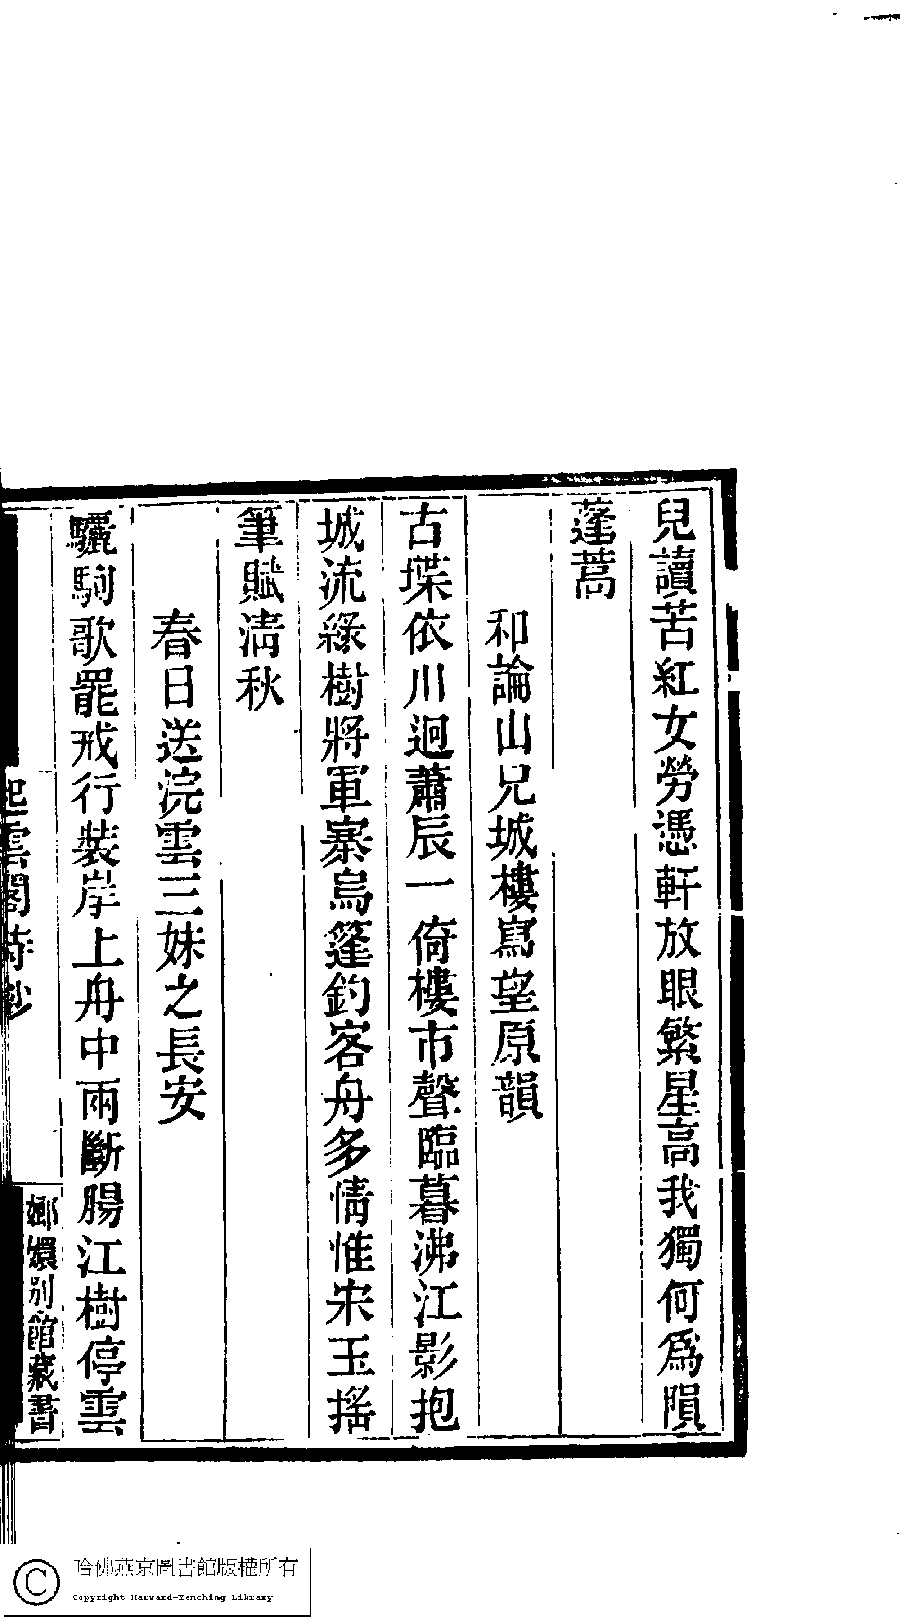 兒讀苦紅女勞憑軒放眼繁星高我獨何爲隕
蓬蒿
和論山兄城樓寫望原韻
古堞依川迥蕭辰一倚樓市聲臨暮沸江影抱
城流綠樹將軍寨烏篷釣客舟多情惟宋玉搖
筆賦清秋
春日送浣雲三妹之長安
驪駒歌罷戒行裝岸上舟中兩斷腸江樹停雲
起雲閣詩鈔
嫏嬛别館藏書
哈佛燕京圖書館版權所有
Copyright Harvard-Yenching Library